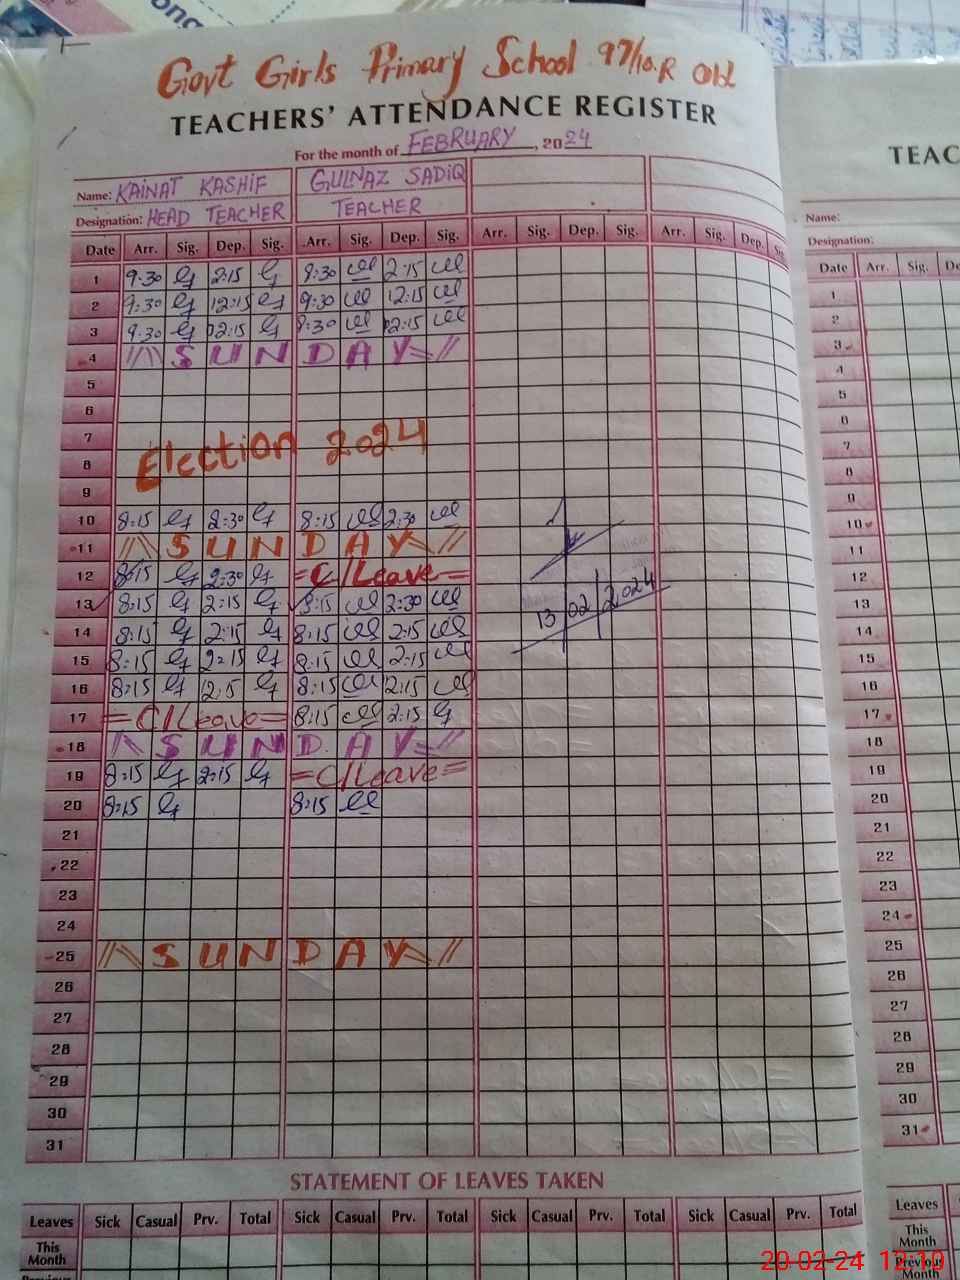 Govt Girls Primary School 97/10.R Old
TEACHERS' ATTENDANCE REGISTER
For the month of FEBRUARY, 2024
Name: KAINAT KASHIF GULNAZ SADIQ
Designation: HEAD TEACHER TEACHER
Date Arr. Sig. Dep. Sig. Arr. Sig. Dep. Sig. Arr. Sig. Dep. Sig. Arr. Sig. Dep. Sig.
1 9:30 2:15 9:30 2:15
2 9:30 12:15 9:30 12:15
3 9:30 12:15 8:30 12:15
4 SUNDAY
5
6
7
Election 2024
8
9
10 8:15 2:30 8:15 2:30
11 SUNDAY
12 8:15 2:30 =C/Leave=
13 8:15 2:15 8:15 2:30
13 02 2024
14 8:15 2:15 8:15 2:15
15 8:15 2:15 8:15 2:15
16 8:15 12:15 8:15 12:15
17 =C/Leave= 8:15 2:15
18 SUNDAY
19 8:15 2:15 =C/Leave=
20 8:15 8:15
21
22
23
24
25 SUNDAY
26
27
28
29
30
31
STATEMENT OF LEAVES TAKEN
Leaves Sick Casual Prv. Total Sick Casual Prv. Total Sick Casual Prv. Total Sick Casual Prv. Total
This
Month
TEAC
Name:
Designation:
Date Arr. Sig. De
1
2
3
4
5
6
7
8
9
10
11
12
13
14
15
16
17
18
19
20
21
22
23
24
25
26
27
28
29
30
31
Leaves
This
Month
Previous
Month
20-02-24 12:10